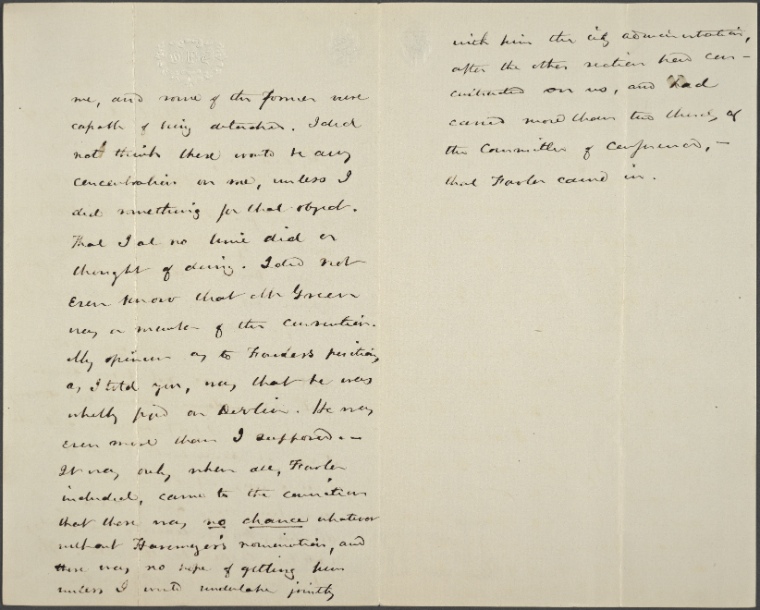 me, and some of the former were
capable of being detached. I did
not think there would be any
concentration on me, unless I
did something for that object.
That I at no time did or
thought of doing. I did not
even know that Mr Green
was a member of the convention.
My opinion as to position,
as I told you, was that he was
wholly on Devlin. He was
even more than I supposed. —
It was only when all, Fowler
included, came to the conviction
that there was no chance whatever
without Havemeyer's nomination, and
there was no hope of getting him
unless I would undertake jointly
with him the city administration,
after the other section had con-
centrated on us, and had
carried more than two thirds of
the Committee of Conference, —
that Fowler came in.